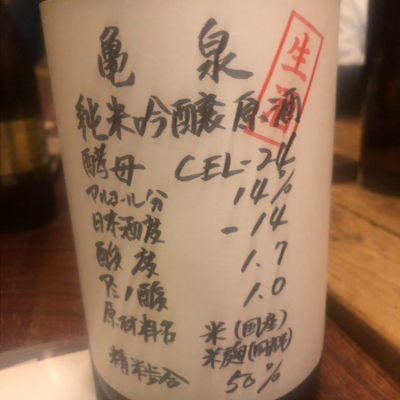 亀泉
生酒
純米吟醸原酒
酵母 CEL-24
アルコール分 14%
日本酒度 -14
酸度 1.7
アミノ酸 1.0
原材料名 米(国産)
米麹(国産米)
精米歩合 50%